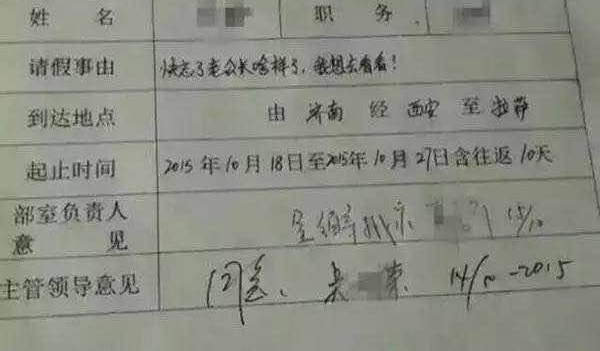 姓 名 职 务
请假事由 快忘了老公长啥样了，我想去看看！
到达地点 由 济南 经 西安 至 拉萨
起止时间 2015年10月18日至2015年10月27日含往返10天
部室负责人
意 见 15/10
主管领导意见 同意、 14/10-2015